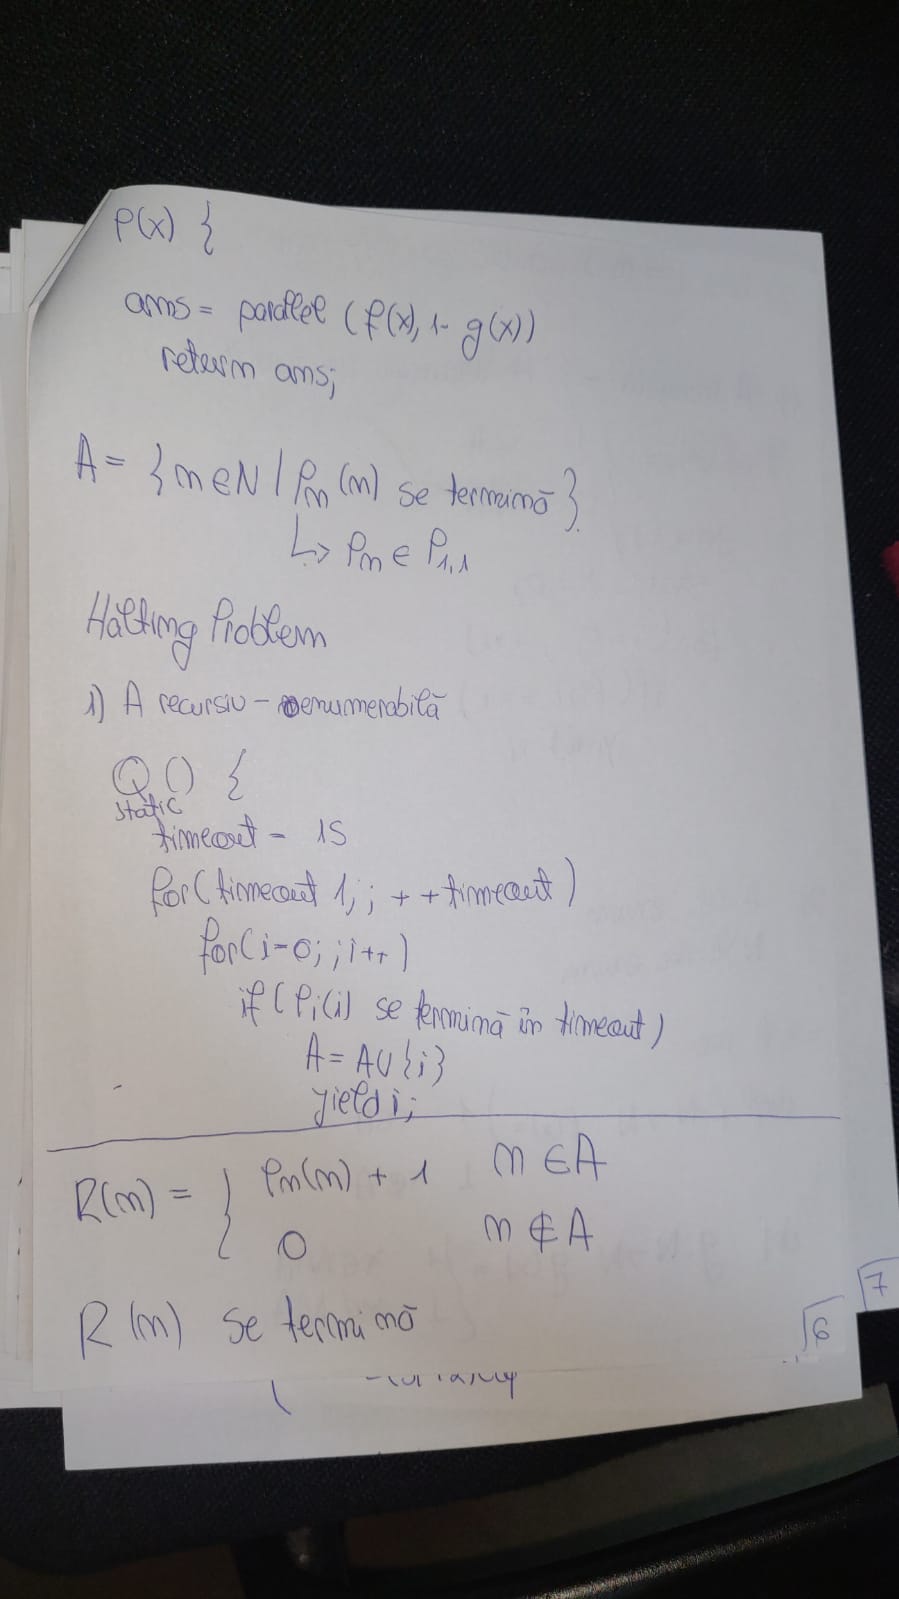 P(x) {
ans = parallel (f(x), 1- g(x))
return ans;
A = { n ∈ N | Pn (n) se termină }
↳ Pn ∈ P1,1
Halting Problem
1) A recursiv - enumerabilă
Q () {
static
timeout = 1s
for( timeout 1; ; ++timeout )
for( i=0; ; i++ )
if ( Pi(i) se termină în timeout )
A = A ∪ {i}
yield i;
R(n) = { Pn(n) + 1 n ∈ A
0 n ∉ A
R (n) se termină
6
7